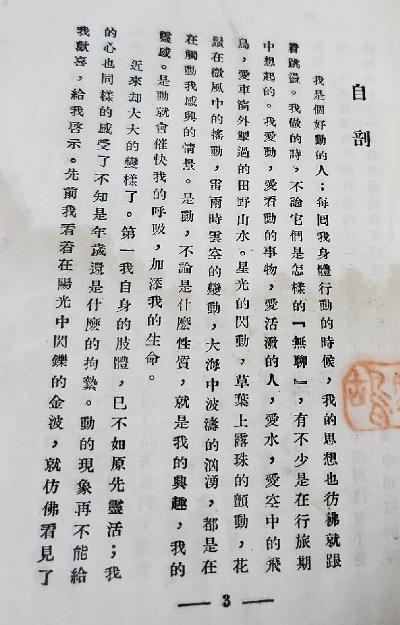 自剖
我是個好動的人；每囘我身體行動的時候，我的思想也彷彿就跟
着跳盪。我做的詩，不論它們是怎樣的『無聊』，有不少是在行旅期
中想起的。我愛動，愛看動的事物，愛活潑的人，愛水，愛空中的飛
鳥，愛車窗外掣過的田野山水。星光的閃動，草葉上露珠的顫動，花
鬚在微風中的搖動，雷雨時雲空的變動，大海中波濤的洶湧，都是在
在觸動我感興的情景。是動，不論是什麼性質，就是我的興趣，我的
靈感。是動就會催快我的呼吸，加添我的生命。
近來却大大的變樣了。第一我自身的肢體，已不如原先靈活；我
的心也同樣的感受了不知是年歲還是什麼的拘縶。動的現象再不能給
我歡喜，給我啓示。先前我看着在陽光中閃鑠的金波，就仿佛看見了
— 3 —